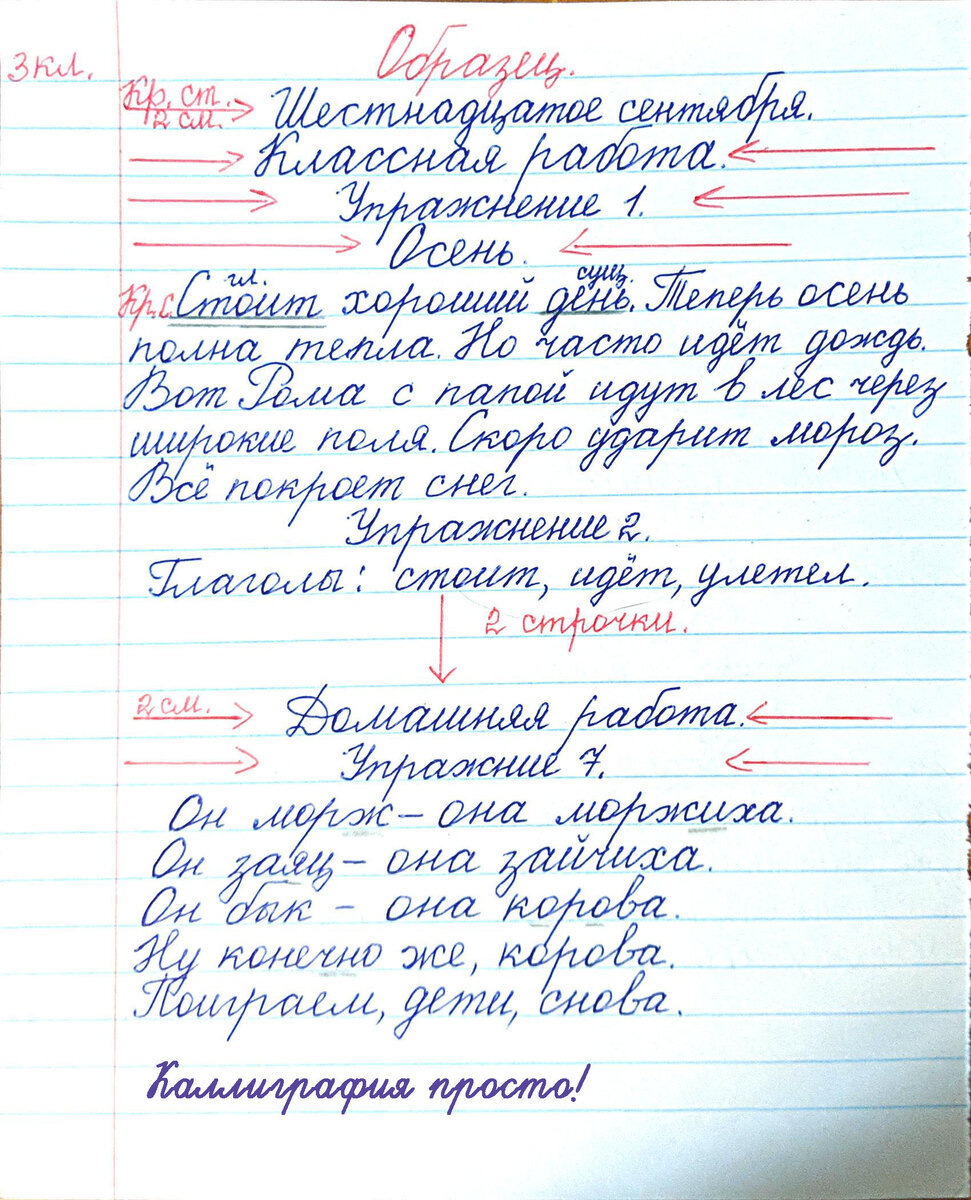 3 кл.
Образец.
Кр. ст.
2 см.
Шестнадцатое сентября.
Классная работа.
Упражнение 1.
Осень.
гл. сущ.
Кр.с. Стоит хороший день. Теперь осень
полна тепла. Но часто идёт дождь.
Вот Рома с папой идут в лес через
широкие поля. Скоро ударит мороз.
Всё покроет снег.
Упражнение 2.
Глаголы: стоит, идёт, улетел.
2 строчки.
2 см.
Домашняя работа.
Упражние 7.
Он морж – она моржиха.
Он заяц – она зайчиха.
Он бык – она корова.
Ну конечно же, корова.
Поиграем, дети, снова.
Каллиграфия просто!